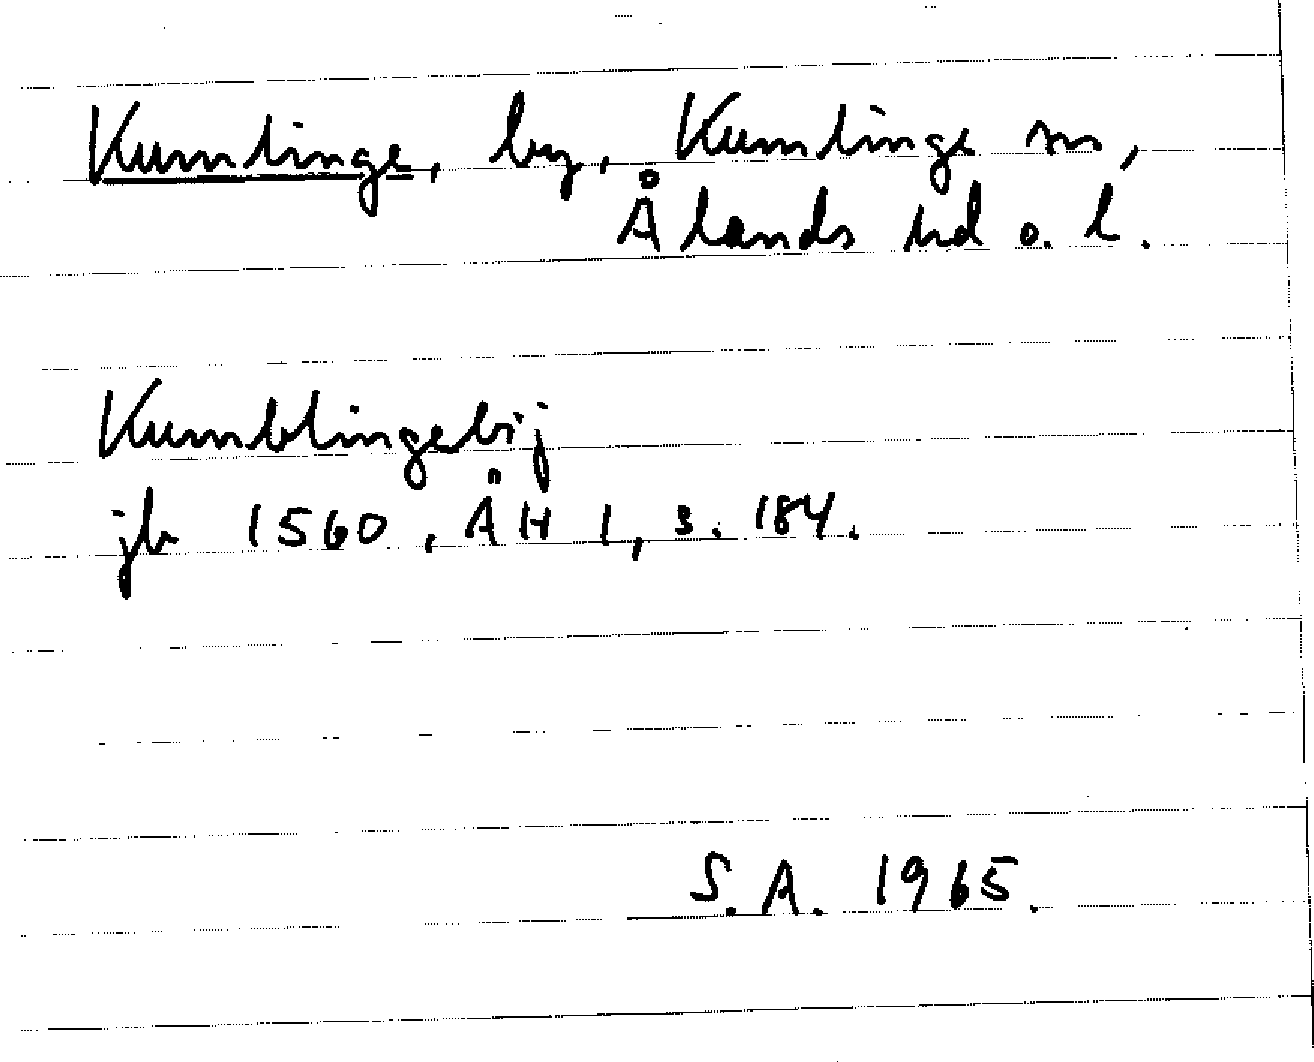 Kumlinge, by, Kumlinge sn,
Ålands hd o. l.
Kumblingebij
jb 1560, ÅH 1, s. 184.
S.A. 1965.